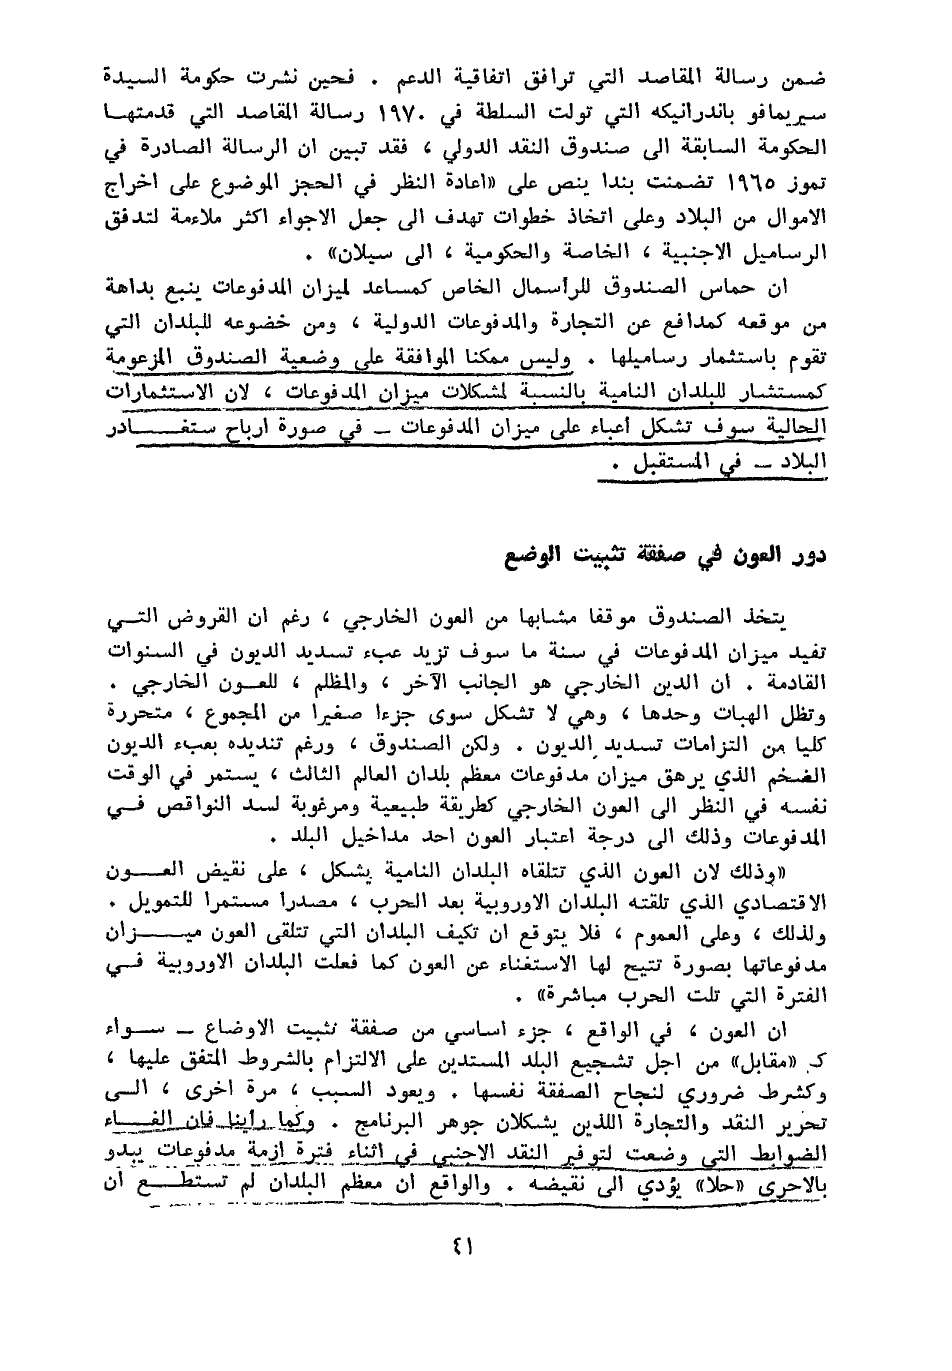 ضمن رسالة المقاصد التي ترافق اتفاقية الدعم . فحين نشرت حكومة السيدة
سيريمافو باندرانيكه التي تولت السلطة في ١٩٧٠ رسالة المقاصد التي قدمتهــا
الحكومة السابقة الى صندوق النقد الدولي ، فقد تبين ان الرسالة الصادرة في
تموز ١٩٦٥ تضمنت بندا ينص على «اعادة النظر في الحجز الموضوع على اخراج
الاموال من البلاد وعلى اتخاذ خطوات تهدف الى جعل الاجواء اكثر ملاءمة لتدفق
الرساميل الاجنبية ، الخاصة والحكومية ، الى سيلان» .
ان حماس الصندوق للرأسمال الخاص كمساعد لميزان المدفوعات ينبع بداهة
من موقعه كمدافع عن التجارة والمدفوعات الدولية ، ومن خضوعه للبلدان التي
تقوم باستثمار رساميلها . وليس ممكنا الموافقة على وضعية الصندوق المزعومة
كمستشار للبلدان النامية بالنسبة لمشكلات ميزان المدفوعات ، لان الاستثمارات
الحالية سوف تشكل أعباء على ميزان المدفوعات ــ في صورة ارباح ستغــــادر
البلاد ــ في المستقبل .
دور العون في صفقة تثبيت الوضع
يتخذ الصندوق موقفا مشابها من العون الخارجي ، رغم ان القروض التــي
تفيد ميزان المدفوعات في سنة ما سوف تزيد عبء تسديد الديون في السنوات
القادمة . ان الدين الخارجي هو الجانب الآخر ، والمظلم ، للعــون الخارجي .
وتظل الهبات وحدها ، وهي لا تشكل سوى جزءا صغيرا من المجموع ، متحررة
كليا من التزامات تسديد الديون . ولكن الصندوق ، ورغم تنديده بعبء الديون
الضخم الذي يرهق ميزان مدفوعات معظم بلدان العالم الثالث ، يستمر في الوقت
نفسه في النظر الى العون الخارجي كطريقة طبيعية ومرغوبة لسد النواقص فــي
المدفوعات وذلك الى درجة اعتبار العون احد مداخيل البلد .
«وذلك لان العون الذي تتلقاه البلدان النامية يشكل ، على نقيض العــــون
الاقتصادي الذي تلقته البلدان الاوروبية بعد الحرب ، مصدرا مستمرا للتمويل .
ولذلك ، وعلى العموم ، فلا يتوقع ان تكيف البلدان التي تتلقى العون ميــــزان
مدفوعاتها بصورة تتيح لها الاستغناء عن العون كما فعلت البلدان الاوروبية فــي
الفترة التي تلت الحرب مباشرة» .
ان العون ، في الواقع ، جزء اساسي من صفقة تثبيت الاوضاع ــ ســواء
كـ «مقابل» من اجل تشجيع البلد المستدين على الالتزام بالشروط المتفق عليها ،
وكشرط ضروري لنجاح الصفقة نفسها . ويعود السبب ، مرة اخرى ، الــى
تحرير النقد والتجارة اللذين يشكلان جوهر البرنامج . وكما رأينا فان الغــاء
الضوابط التي وضعت لتوفير النقد الاجنبي في اثناء فترة ازمة مدفوعات يبدو
بالاحرى «حلا» يؤدي الى نقيضه . والواقع ان معظم البلدان لم تستطــع ان
٤١